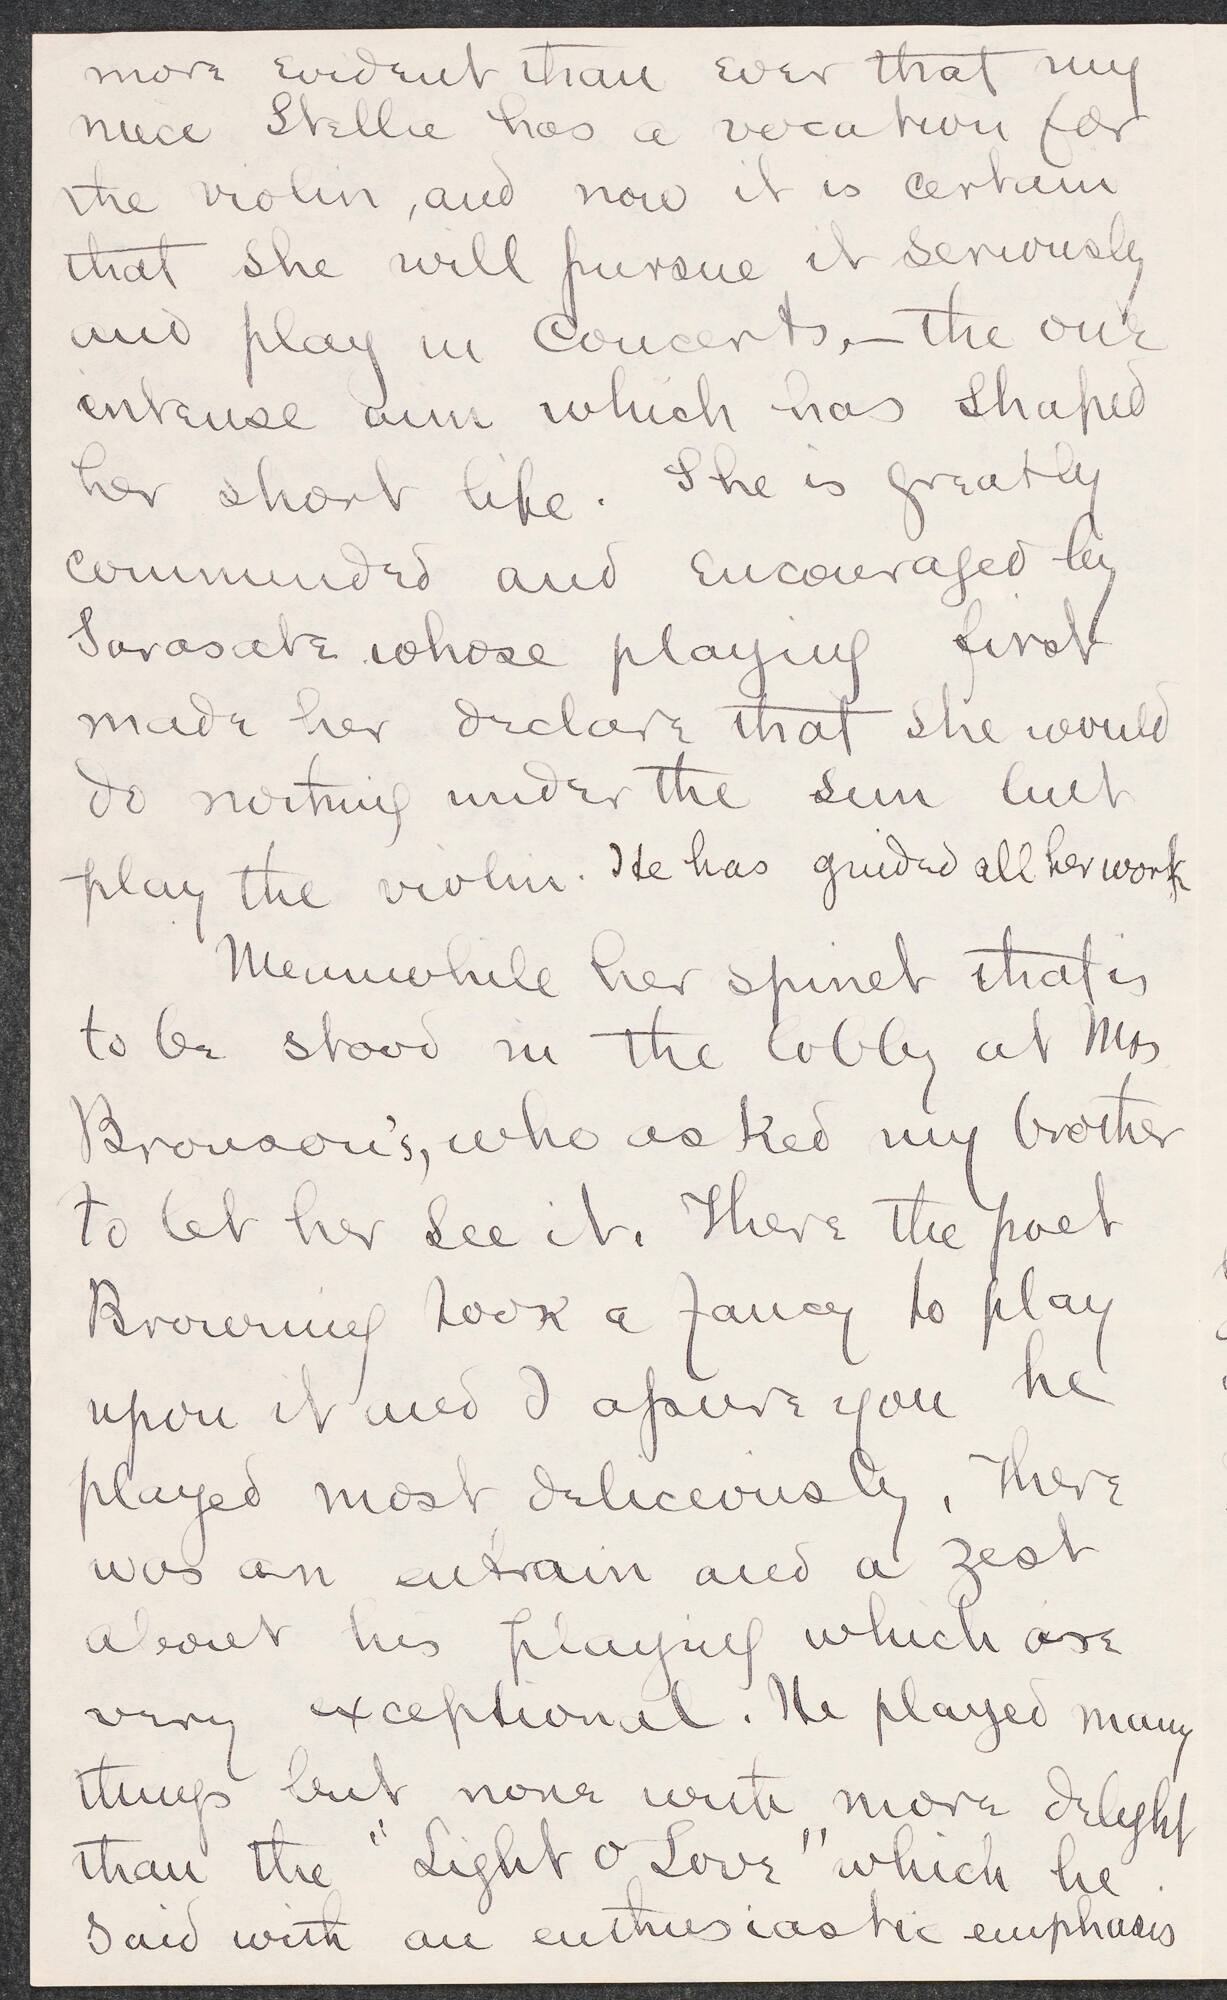 more evident than ever that my
niece Stella has a vocation for
the violin, and now it is certain
that she will pursue it seriously
and play in Concerts,—the one
intense aim which has shaped
her short life. She is greatly
commended and encouraged by
Sarasate whose playing first
made her declare that she would
do nothing under the sun but
play the violin. He has guided all her work
Meanwhile her spinet that is
to be stood in the lobby at Mrs
Bronson's, who asked my brother
to let her see it. There the poet
Browning took a fancy to play
upon it and I assure you he
played most deliciously, There
was an entrain and a zest
about his playing which are
very exceptional. He played many
things but none with more delight
than the "Light o Love" which he
said with an enthusiastic emphasis